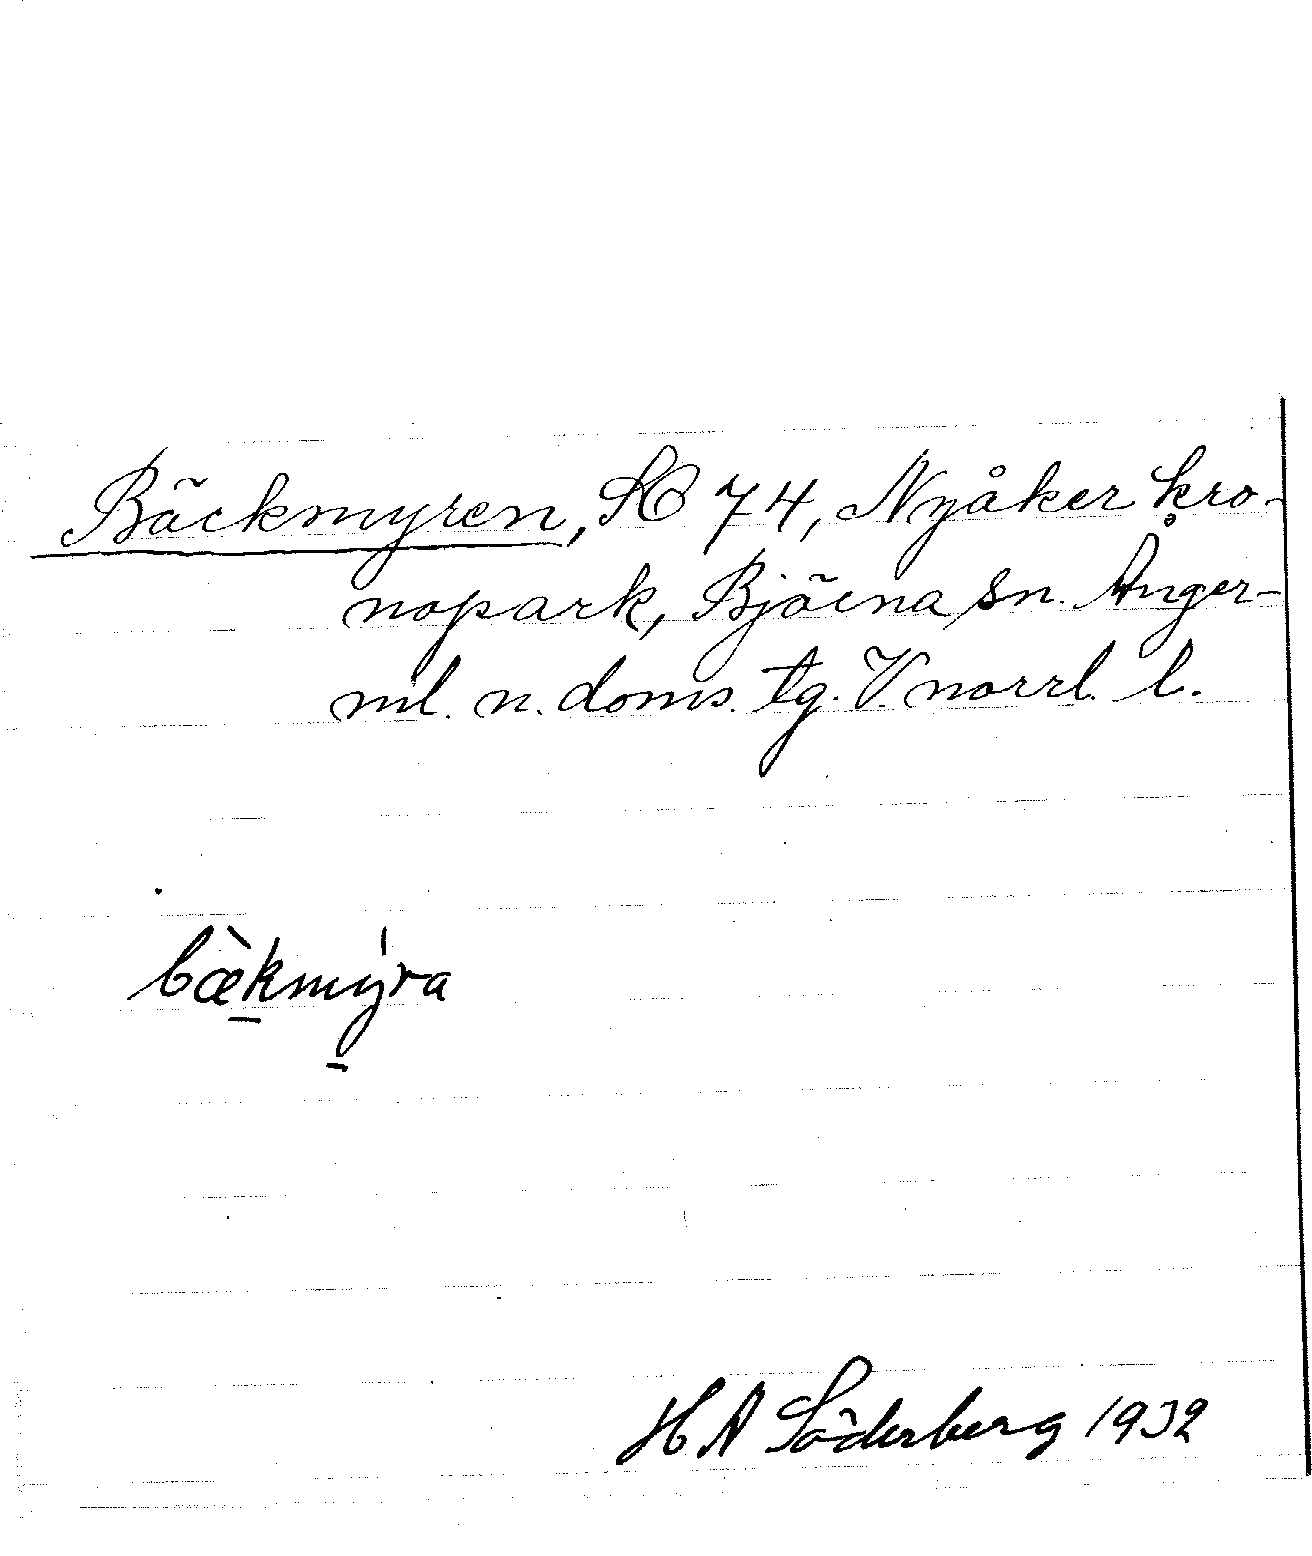 Bäckmyren, SO 74, Nyåker kro-
nopark, Björna sn. Ånger-
ml. n. doms. tg. V. norrl. l.
bæ̀kmýra
H A Söderberg 1932